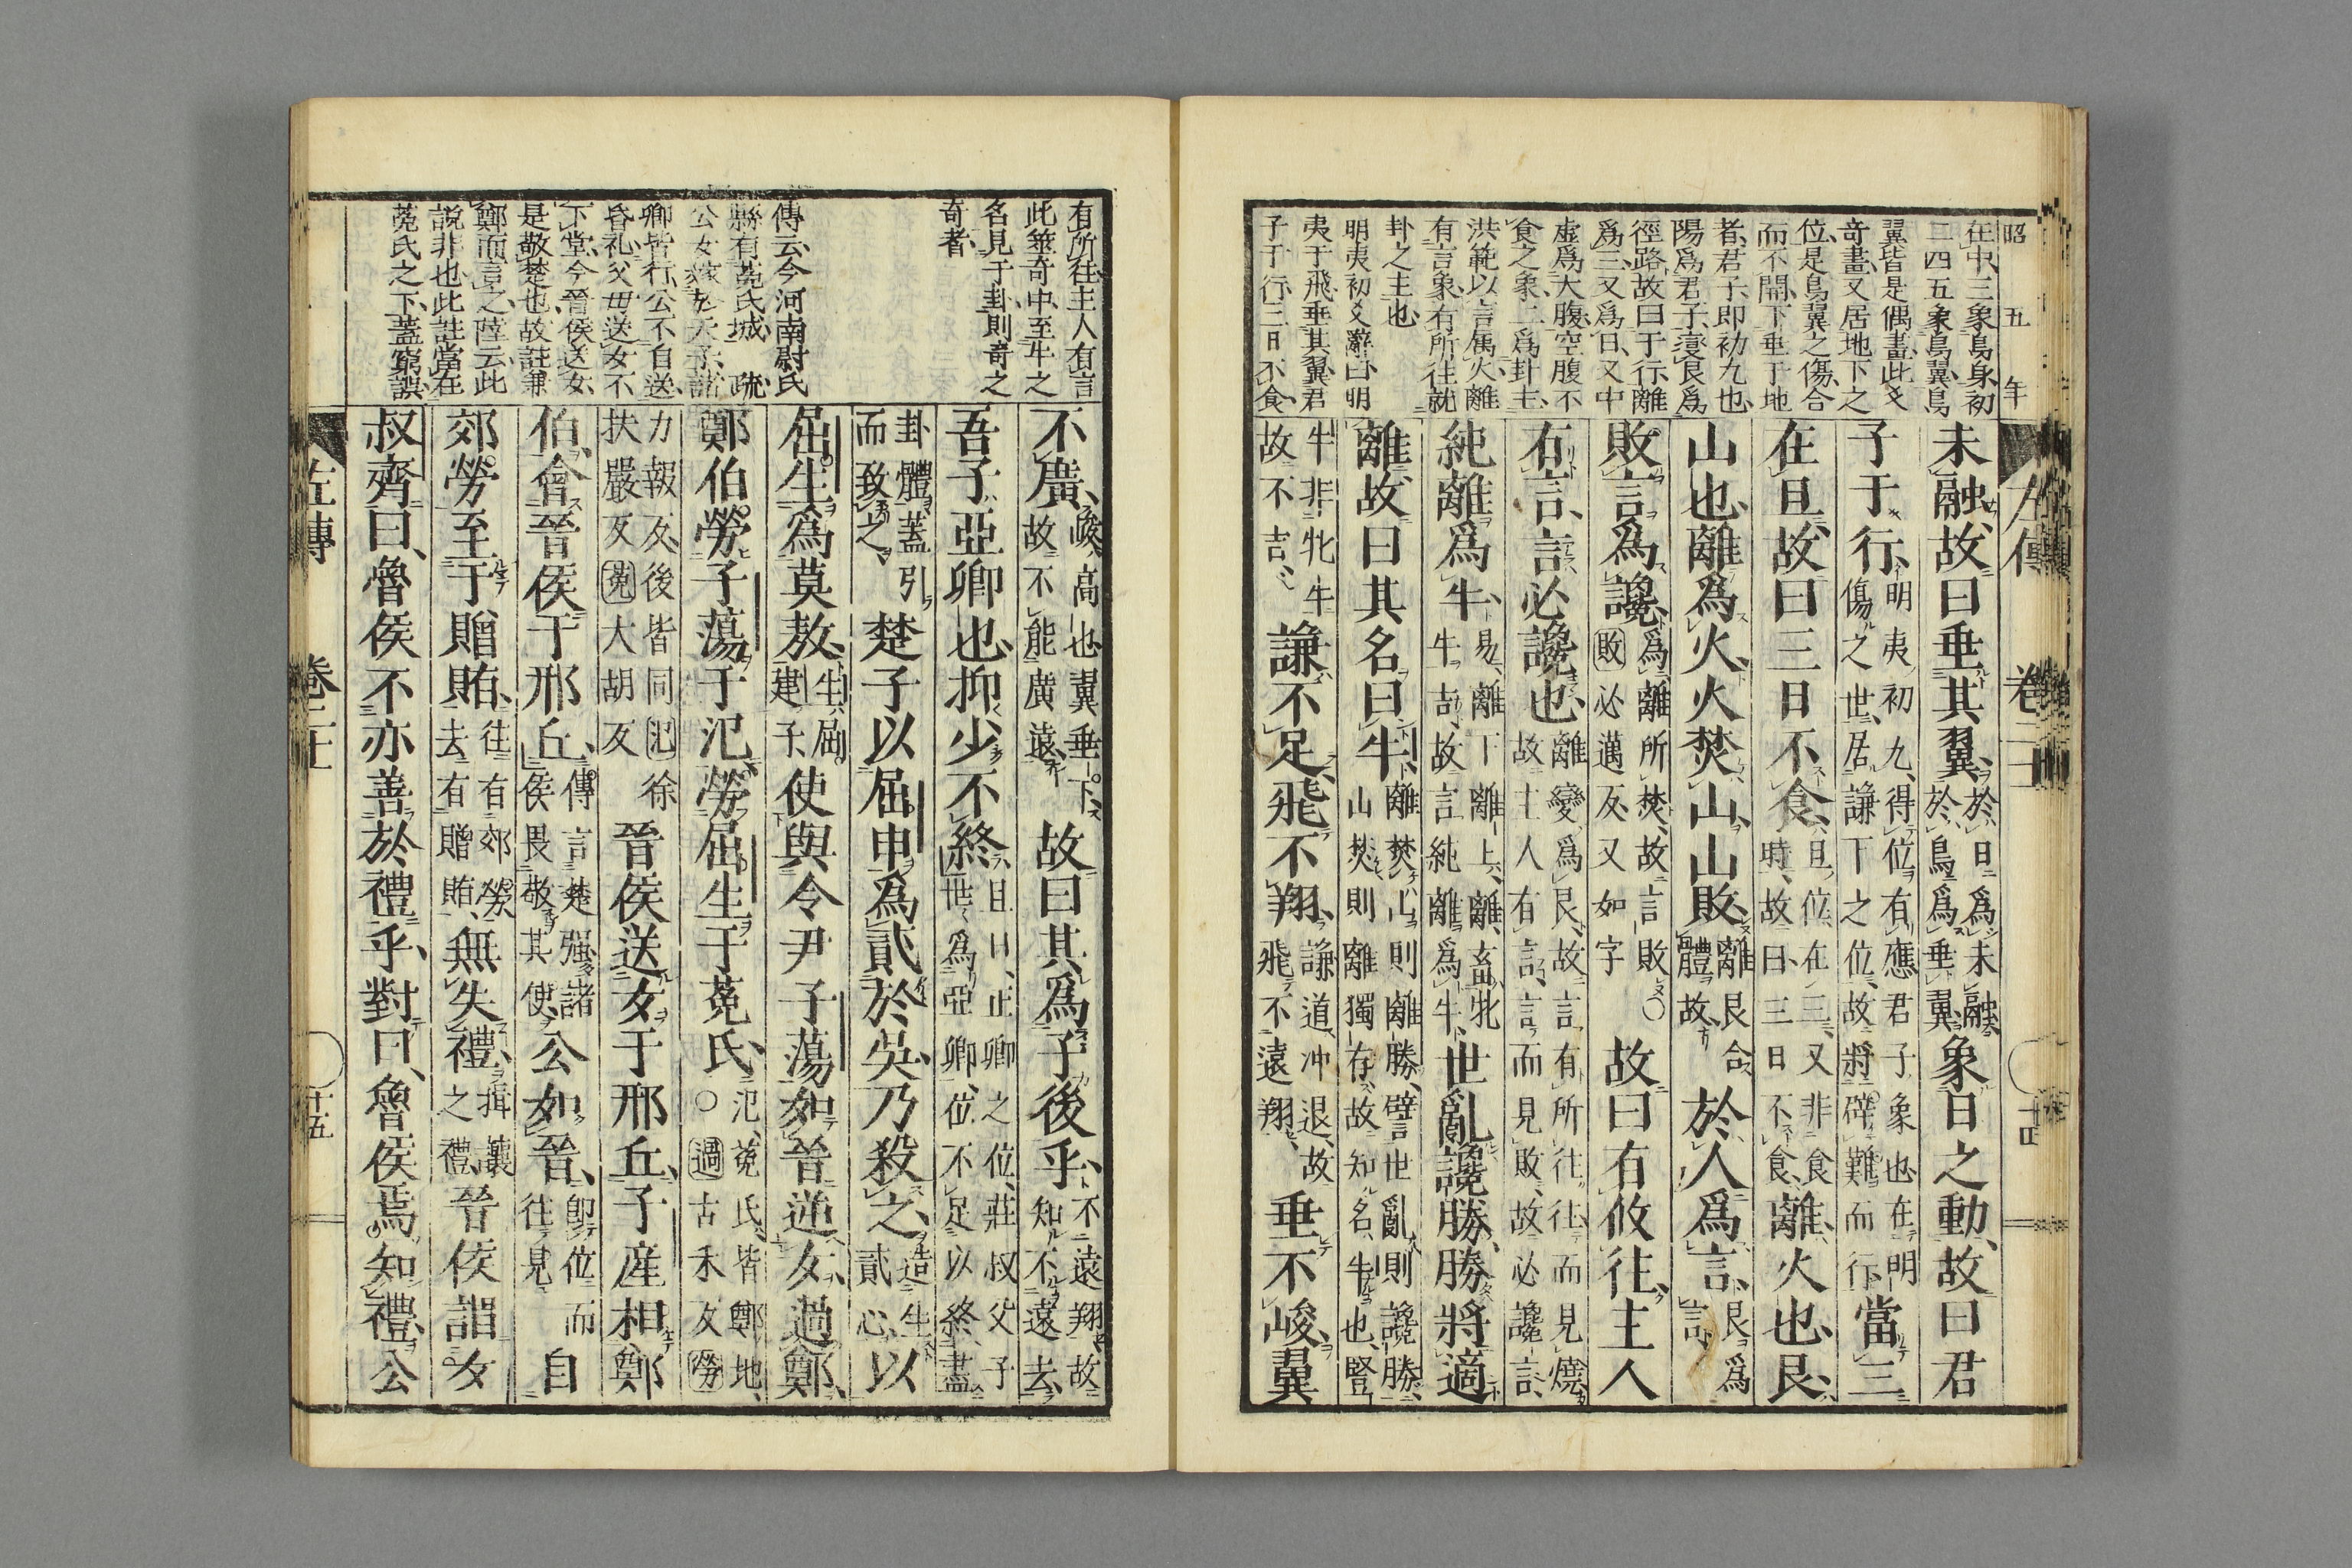 昭 五 年
在中三象鳥身初
二四五象鳥翼鳥
翼皆是偶畫此爻
奇畫又居地下之
位是鳥翼之傷合
而不開下垂于地
者君子即初九也
陽爲君子變艮爲
徑路故曰于行離
爲三又爲日又中
虛爲大腹空腹不
食之象二爲卦主
洪範以言屬火離
有言象有所往就
卦之主也
明夷初爻辭曰明
夷于飛垂其翼君
子于行三日不食
左傳 卷二十一 十四
未融故曰垂其翼於日爲未融於鳥爲垂翼象日之動故曰君
子于行明夷初九得位有應君子象也在明傷之世居謙下之位故將辟難而行當三
在旦故曰三日不食旦位在三又非食時故曰三日不食離火也艮
山也離爲火火焚山山敗離艮合體故於人爲言艮爲言
敗言爲讒爲離所焚故言敗○敗必邁反又如字故曰有攸往主人
有言言必讒也離變爲艮故言有所往往而見燒故主人有言言而見敗故必讒言
純離爲牛易離下離上離畜牝牛吉故言純離爲牛世亂讒勝勝將適
離故曰其名曰牛離焚山則離勝譬世亂則讒勝山焚則離獨存故知名牛也豎
牛非牝牛故不吉謙不足飛不翔謙道冲退故飛不遠翔垂不峻翼
有所往主人有言
此筮奇中至牛之
名見于卦則奇之
奇者
傳云今河南尉氏
縣有菟氏城 疏
公女嫁於天子諸
卿皆行公不自送
昏礼父母送女不
下堂今晉侯送女
是敬楚也故註兼
鄭而言之陸云此
說非也此註當在
菟氏之下蓋窮誤
不廣峻高也翼垂下故不能廣遠故曰其爲子後乎不遠翔故知不遠去
吾子亞卿也抑少不終旦日正卿之位莊叔父子世爲亞卿位不足以終盡
卦體蓋引而致之楚子以屈申爲貳於吳乃殺之造生貳心以
屈生爲莫敖生屈建子使與令尹子蕩如晉逆女過鄭
鄭伯勞子蕩于氾勞屈生于菟氏氾菟氏皆鄭地○過古禾反勞
力報反後皆同氾徐扶嚴反菟大胡反晉侯送女于邢丘子產相鄭
伯會晉侯于邢丘傳言楚强諸侯畏敬其使公如晉卽位而往見自
郊勞至于贈賄往有郊勞去有贈賄無失禮揖讓之禮晉侯謂女
叔齊曰魯侯不亦善於禮乎對曰魯侯焉知禮公
左傳 卷二十一 十五